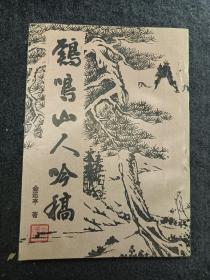 鷄鸣山人吟稿
金运亭 著